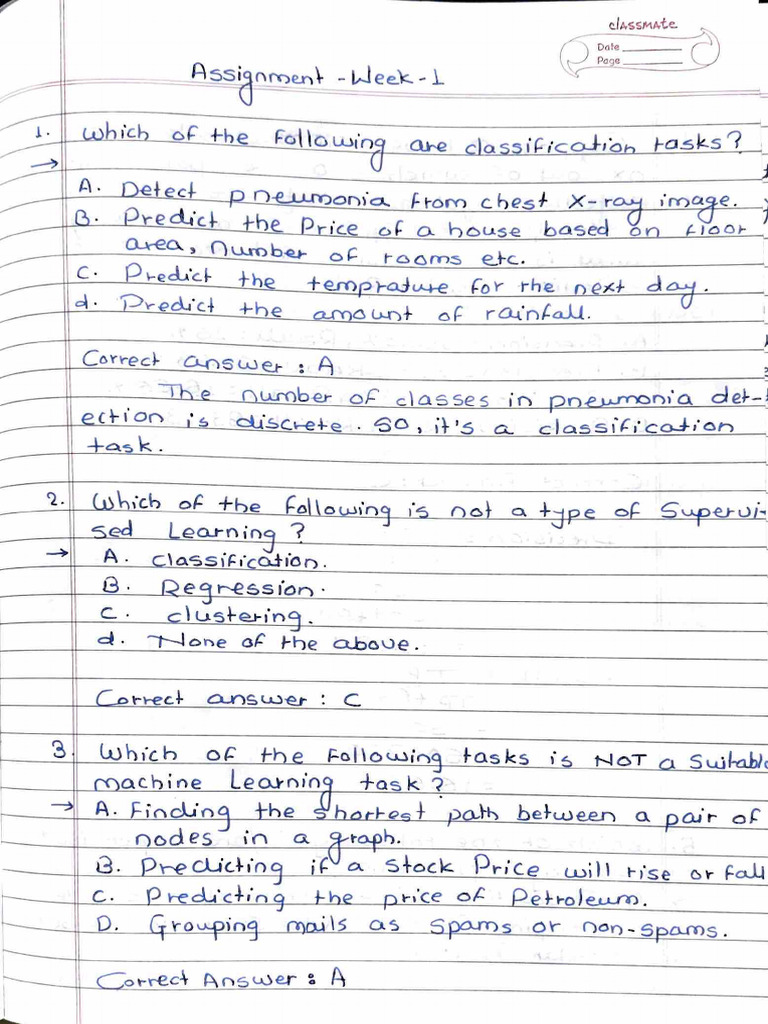 classmate
Date
Page
Assignment - Week - 1
1. Which of the following are classification tasks?
→
A. Detect pneumonia from chest X-ray image.
B. Predict the Price of a house based on floor
area, number of rooms etc.
C. Predict the temprature for the next day.
d. Predict the amount of rainfall.
Correct answer : A
The number of classes in pneumonia det-
ection is discrete. So, it's a classification
task.
2. Which of the following is not a type of Supervi-
sed Learning?
→ A. classification.
B. Regression.
C. clustering.
d. None of the above.
Correct answer : C
3. Which of the following tasks is NOT a Suitable
machine Learning task?
→ A. Finding the shortest path between a pair of
nodes in a graph.
B. Predicting if a stock Price will rise or fall
C. Predicting the price of Petroleum.
D. Grouping mails as spams or non-spams.
Correct Answer : A